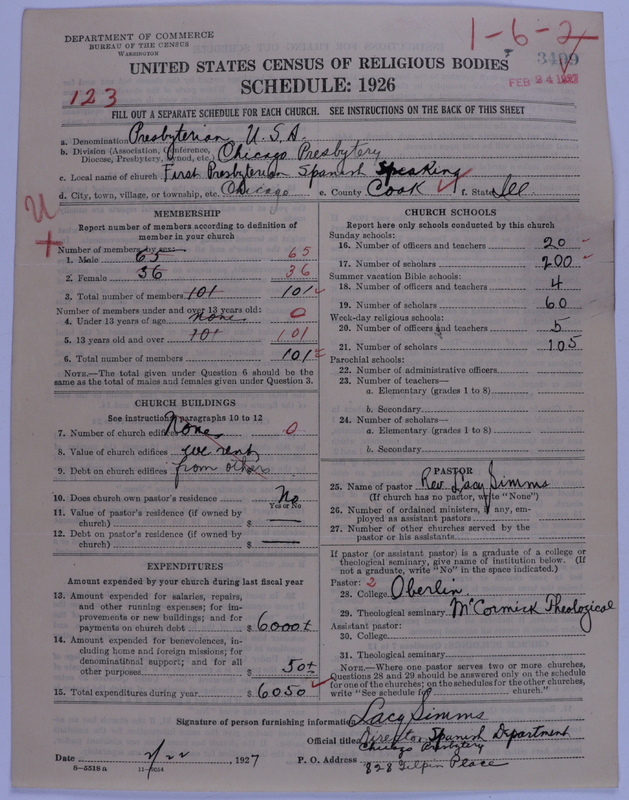 DEPARTMENT OF COMMERCE
BUREAU OF THE CENSUS
WASHINGTON
1-6-2
3409
FEB 24 1927
UNITED STATES CENSUS OF RELIGIOUS BODIES
SCHEDULE: 1926
123
FILL OUT A SEPARATE SCHEDULE FOR EACH CHURCH. SEE INSTRUCTIONS ON THE BACK OF THIS SHEET
a. Denomination Presbyterian U.S.A.
b. Division (Association, Conference, Diocese, Presbytery, Synod, etc.) Chicago Presbytery
c. Local name of church First Presbyterian Spanish Speaking
d. City, town, village, or township, etc. Chicago e. County Cook f. State Ill
MEMBERSHIP
Report number of members according to definition of
member in your church
Number of members by sex:
1. Male 65 65
2. Female 36 36
3. Total number of members 101 101
Number of members under and over 13 years old:
4. Under 13 years of age none 0
5. 13 years old and over 101 101
6. Total number of members 101
NOTE.—The total given under Question 6 should be
same as the total of males and females given under Question 3.
CHURCH BUILDINGS
See instructions, paragraphs 10 to 12
7. Number of church edifices None 0
8. Value of church edifices we rent
9. Debt on church edifices from others
10. Does church own pastor's residence No
Yes or No
11. Value of pastor's residence (if owned by
church) $ —
12. Debt on pastor's residence (if owned by
church) $ —
EXPENDITURES
Amount expended by your church during last fiscal year
13. Amount expended for salaries, repairs,
and other running expenses; for im-
provements or new buildings; and for
payments on church debt $ 6000±
14. Amount expended for benevolences, in-
cluding home and foreign missions; for
denominational support; and for all
other purposes 50±
15. Total expenditures during year $ 6050
CHURCH SCHOOLS
Report here only schools conducted by this church
Sunday schools:
16. Number of officers and teachers 20
17. Number of scholars 200
Summer vacation Bible schools:
18. Number of officers and teachers 4
19. Number of scholars 60
Week-day religious schools:
20. Number of officers and teachers 5
21. Number of scholars 105
Parochial schools:
22. Number of administrative officers
23. Number of teachers—
a. Elementary (grades 1 to 8)
b. Secondary
24. Number of scholars—
a. Elementary (grades 1 to 8)
b. Secondary
PASTOR
25. Name of pastor Rev. Lacy Simms
(If church has no pastor, write "None")
26. Number of ordained ministers, if any, em-
ployed as assistant pastors
27. Number of other churches served by the
pastor or his assistants
If pastor (or assistant pastor) is a graduate of a college or
theological seminary, give name of institution below. (If
not a graduate, write "No" in the space indicated.)
Pastor: 2
28. College Oberlin
29. Theological seminary McCormick Theological
Assistant pastor:
30. College
31. Theological seminary
NOTE.—Where one pastor serves two or more churches,
Questions 28 and 29 should be answered only on the schedule
for one of the churches; on the schedules for the other churches,
write "See schedule for church."
Signature of person furnishing information Lacy Simms
Official title Director Spanish Department
Chicago Presbytery
Date 2/22, 1927 P. O. Address 828 Gilpin Place
8-5518 a